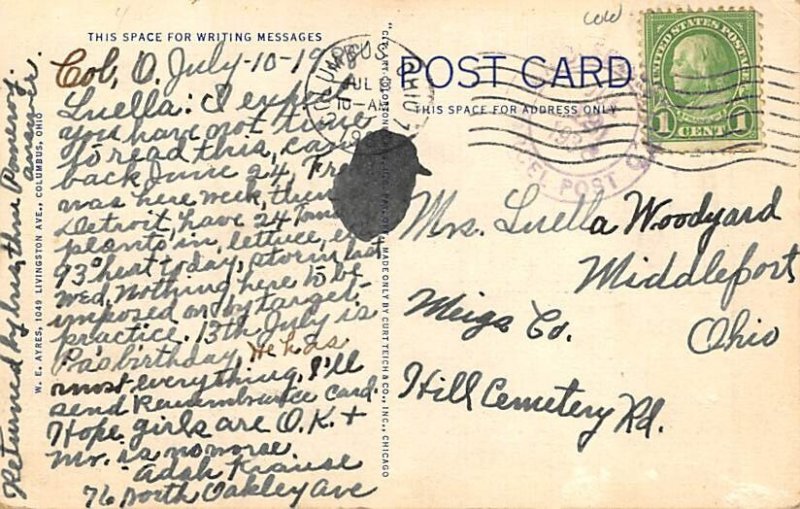 cold
THIS SPACE FOR WRITING MESSAGES
POST CARD
THIS SPACE FOR ADDRESS ONLY
UNITED STATES POSTAGE
1 CENT 1
COLUMBUS OHIO
JUL
10-AM
19
PARCEL POST
Col, O. July-10-19
Luella: I
you have not time
to read this,
back June 24,
was here week,
Detroit, have 24
plants in, lettuce,
93° heat today, storm last
Wed. Nothing here to be
imposed on by target-
practice. 13th July is
Pa's birthday He has
most everything, I'll
send Remembrance Card.
Hope girls are O.K. +
Mr. is no worse
Adah Krause
76 North Oakley Ave
Returned by way thru Pomeroy.
W. E. AYRES, 1049 LIVINGSTON AVE., COLUMBUS, OHIO
MADE ONLY BY CURT TEICH & CO., INC., CHICAGO
Mrs. Luella Woodyard
Middleport
Meigs Co.
Ohio
Hill Cemetery Rd.